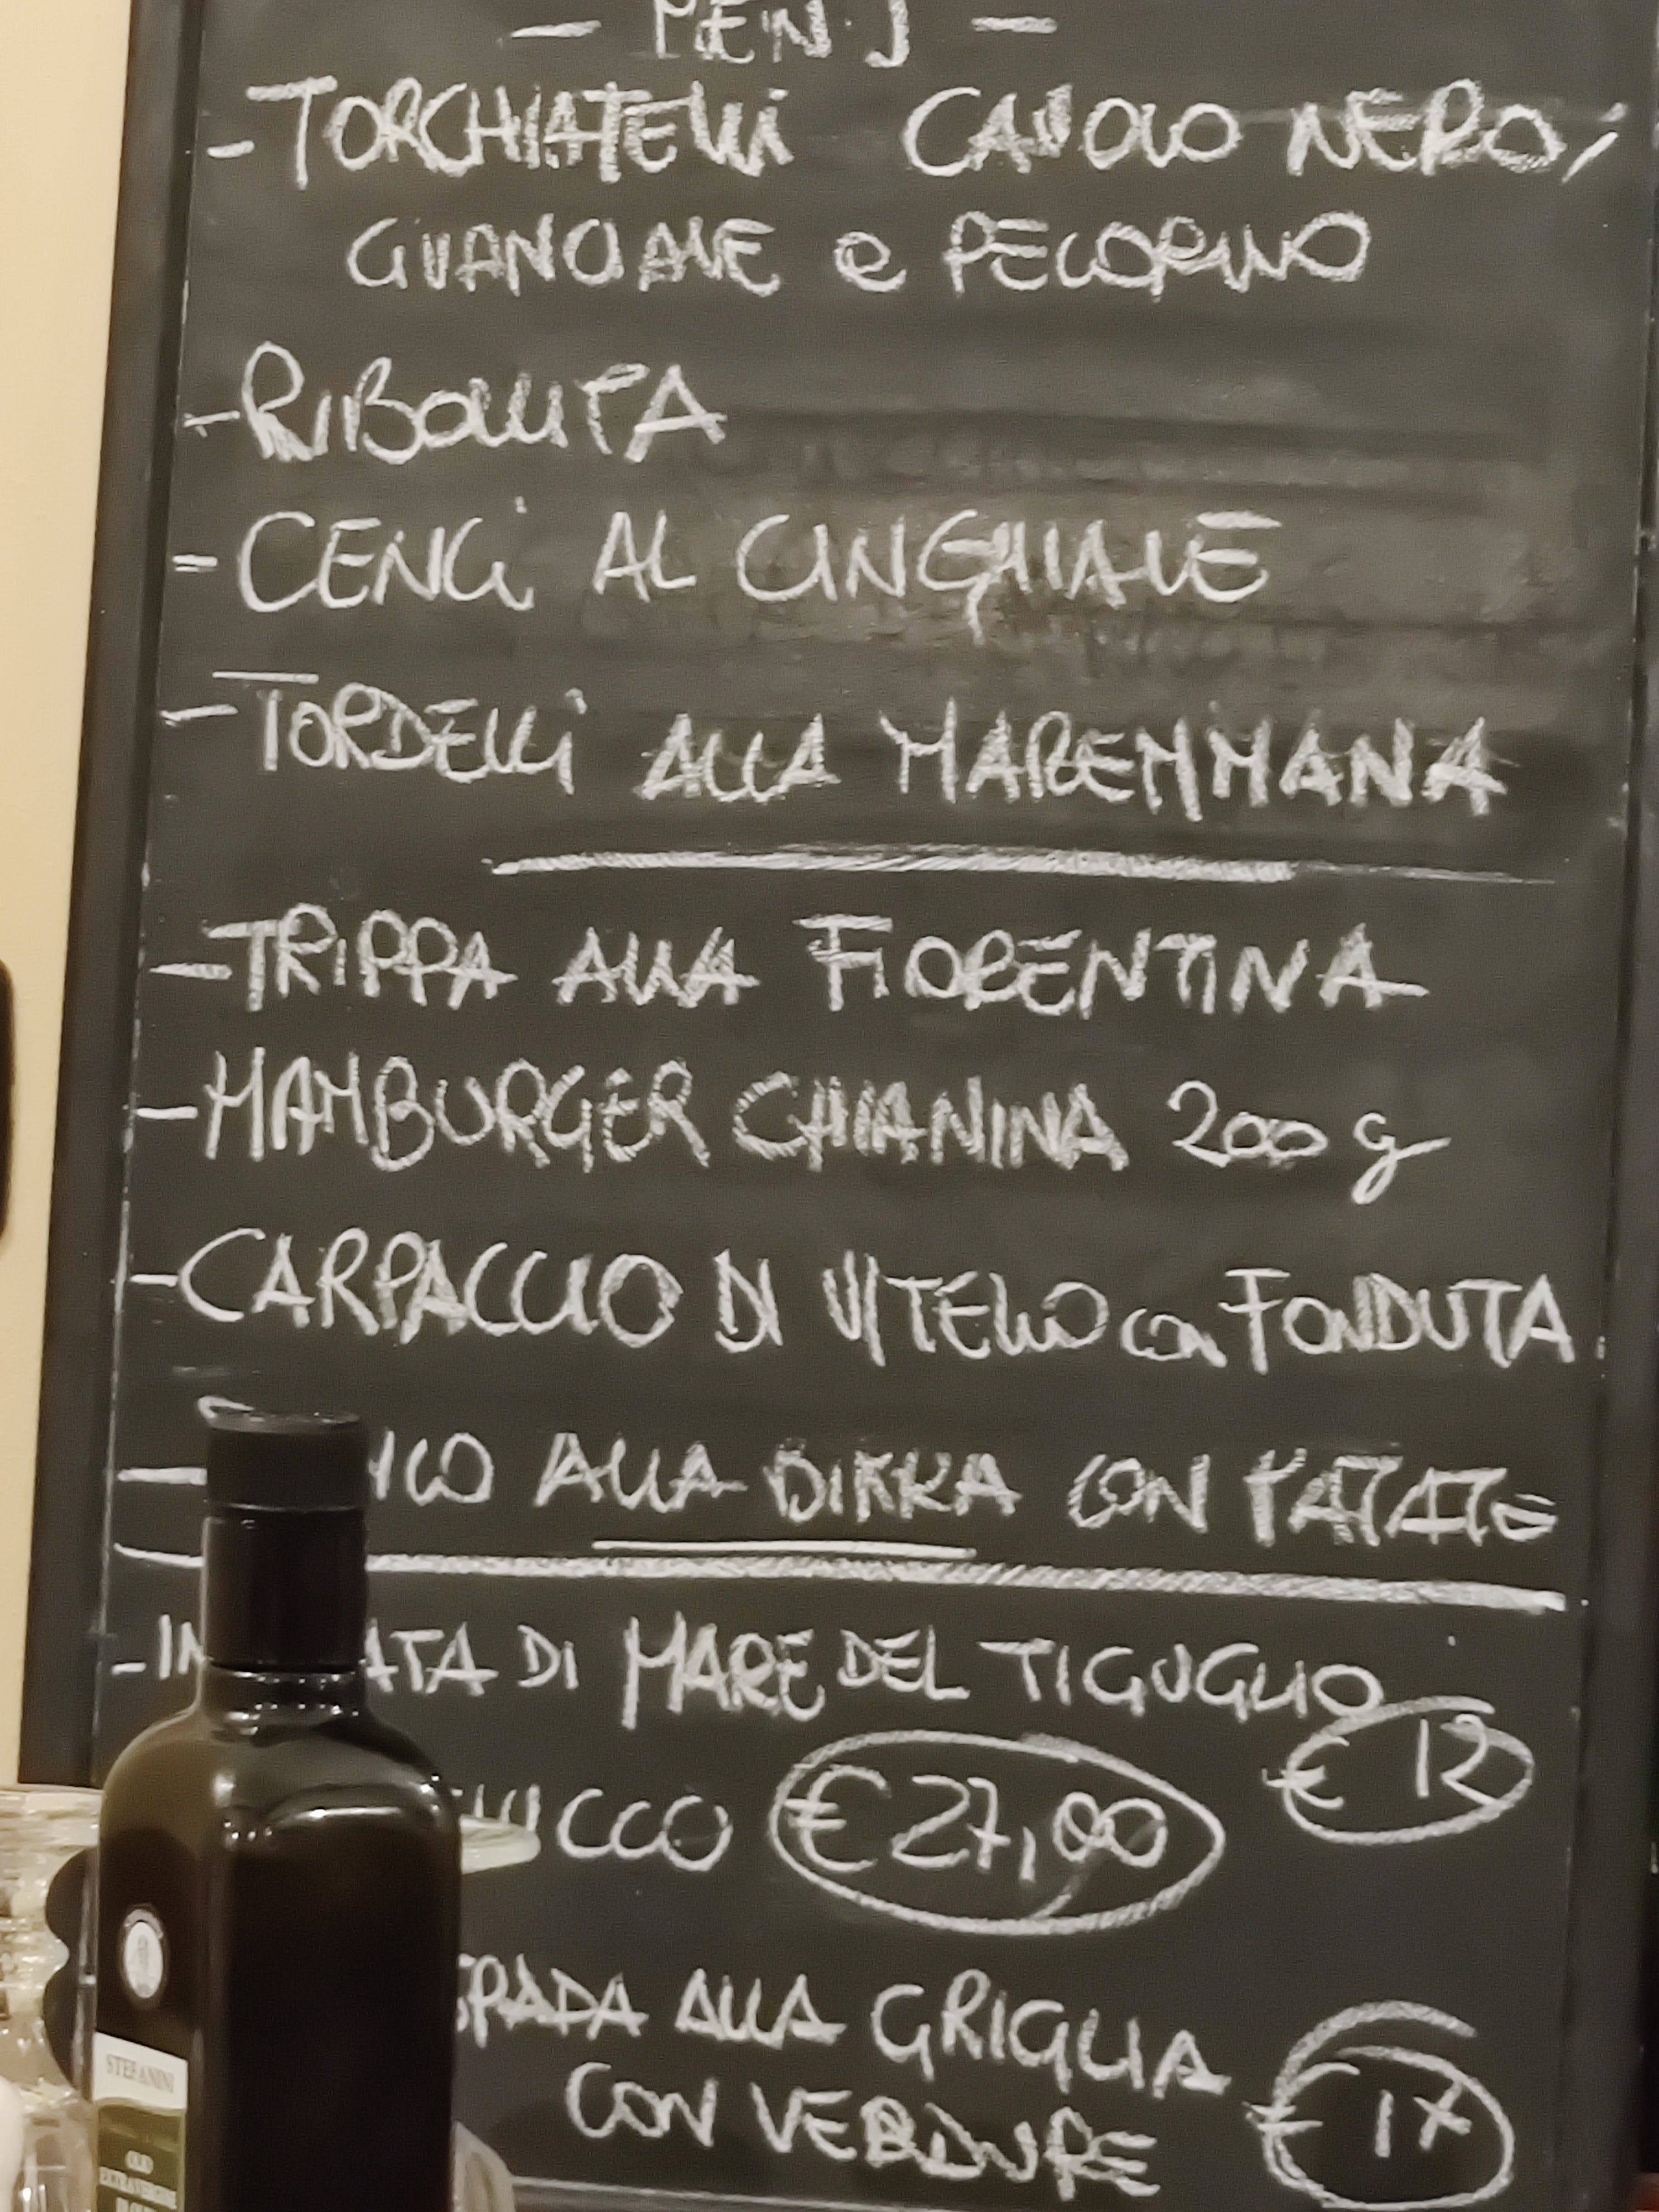 — MENÙ —
- TORCHIATELLI CAVOLO NERO,
GUANCIALE e PECORINO
- RIBOLLITA
- CENCI AL CINGHIALE
- TORDELLI ALLA MAREMMANA
- TRIPPA ALLA FIORENTINA
- HAMBURGER CHIANINA 200 g
- CARPACCIO DI VITELLO con FONDUTA
- ALLA BIRRA CON PATATE
- DI MARE DEL TIGUGLIO
€ 12
€ 27,00
SPADA ALLA GRIGLIA
CON VERDURE
€ 17
STEFANINI
OLIO
EXTRAVERGINE